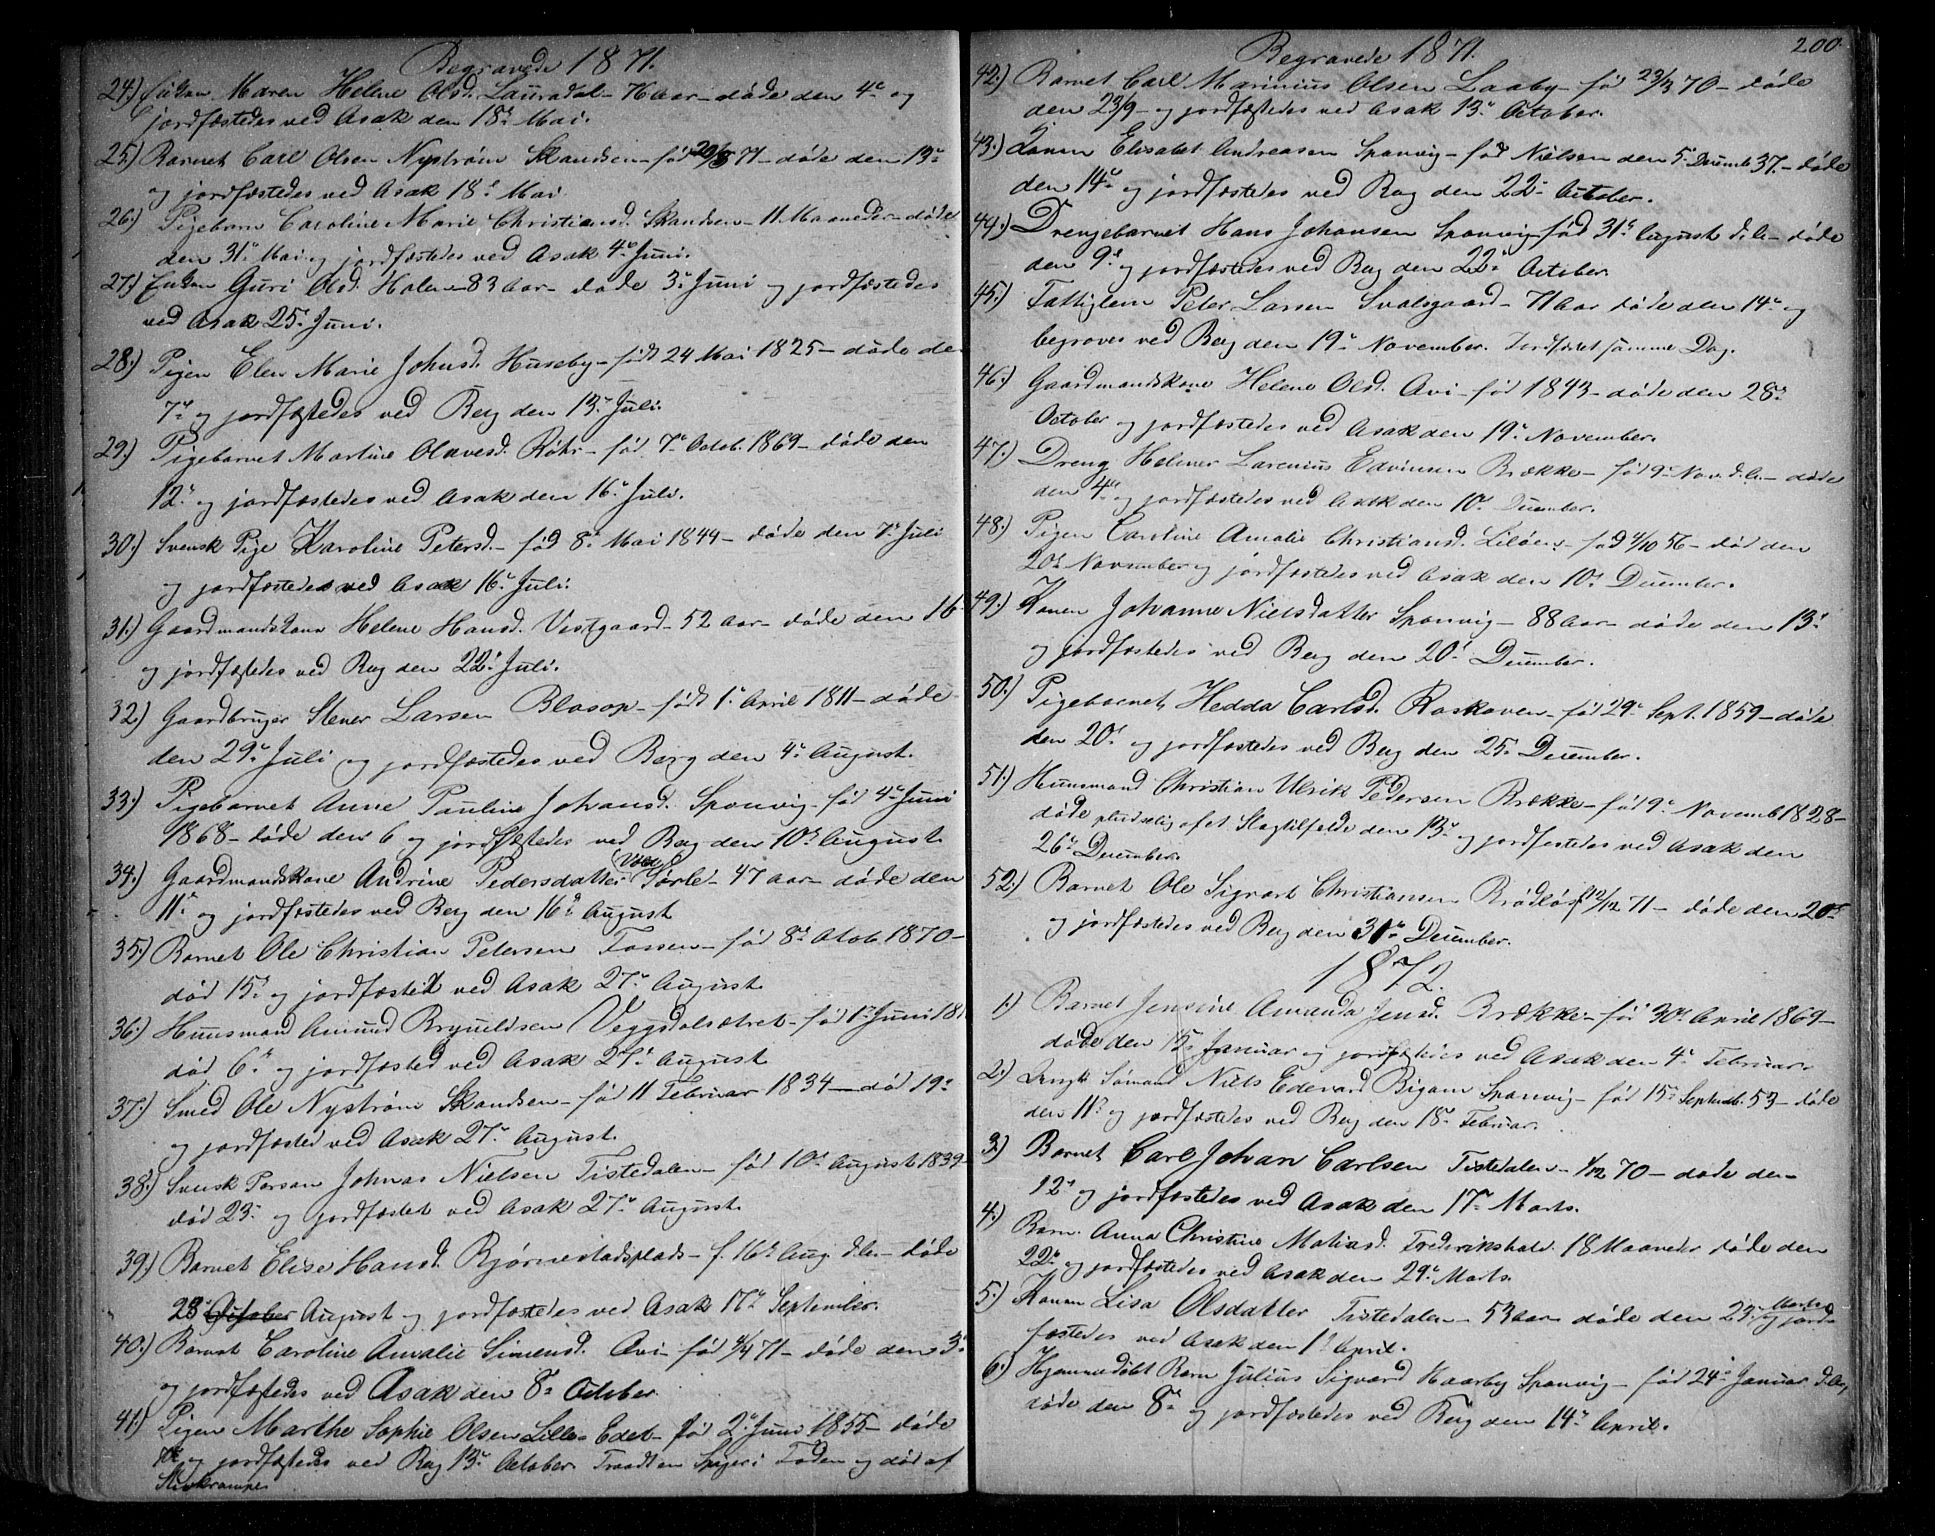 Begravede 1871.
24.) Enken Maren Helene Olsd. Lauradal - 71 aar - døde den 4de og
jordfæstedes ved Asak den 18de Mai.
25.) Barnet Carl Olsen Nystrøm Skandsen - født 20/3 71 - døde den 13de
og jordfæstedes ved Asak 18de Mai
26.) Pigebarn Caroline Marie Christiansd. Skandsen - 11 Maaneder - døde
den 31te Mai og jordfæstedes ved Asak 4de Juni.
27.) Enken Guri Olsd. Holen - 83 aar - døde 3de Juni og jordfæstedes
ved Asak 25de Juni.
28.) Pigen Elen Marie Johnsd. Huseby - født 24 Mai 1825 - døde de
7de og jordfæstedes ved Berg den 13de Juli.
29.) Pigebarnet Martine Olavesd. Røhr - fød 7de Octob. 1869 - døde den
12te og jordfæstedes ved Asak den 16de Juli.
30.) Svensk Pige Karoline Petersd. - fød 8de Mai 1844 - døde den 7de Juli
og jordfæstedes ved Asak 16de Juli.
31.) Gaardmandskone Helene Hansd. Vestgaard - 52 aar - døde den 16
og jordfæstedes ved Berg den 22de Juli.
32.) Gaardbruger Stener Larsen Blasop - født 1te April 1811 - døde
den 29de Juli og jordfæstedes ved Berg den 4de August.
33.) Pigebarnet Anne Pauline Johansd. Sponvig - fød 4de Juni
1868 - døde den 6 og jordfæstedes ved Berg den 10de August.
34.) Gaardmandskone Andrine Pedersdatter Sørle - 47 aar - døde den
11te og jordfæstedes ved Berg den 16de August
35.) Barnet Ole Christian Petersen Fossen - fød 8de Octob. 1870 -
død 15de og jordfæstet ved Asak 27de August.
36.) Huusmand Amund Brynildsen Veggdalsætret - fød 1te Juni 181
død 6te og jordfæsted ved Asak 27de August
37.) Smed Ole Nystrøm Skandsen - fød 11 Februar 1834 - død 19de
og jordfæsted ved Asak 27de August.
38.) Svensk Person Johnas Nielsen Tistedalen - fød 10de August 1839 -
død 23de og jordfæstet ved Asak 27de August.
39.) Barnet Elise Hansd. Bjørnestadsplads - f. 16de Aug. d.A. - døde
28de August og jordfæstedes ved Asak 17de September.
40.) Barnet Caroline Amalie Simensd. Avi - fød 4/4 71 - døde den 3de
og jordfæstedes ved Asak den 8de October
41.) Pigen Marthe Sophie Olsen Lille-Edet - fød 2de Juni 1855 - døde
og jordfæstedes ved Berg 13de October. Traadt en Spiger i Foden og død af
Stivkrampe
200.
Begravede 1871.
42.) Barnet Carl Marinius Olsen Laaby - fød 23/3 70 - døde
den 23/9 - og jordfæstedes ved Asak 13de October.
43.) Konen Elisabet Andreasen Sponvig - født Nielsen den 5te Decemb. 37 - døde
den 14de og jordfæstedes ved Berg den 22de October.
44.) Drengebarnet Hans Johansen Sponvig - fød 31te August d.A. - døde
den 9de og jordfæstedes ved Berg den 22de October.
45.) Fattiglem Peter Larsen Svalsgaard - 71 aar døde den 14de og
begroves ved Berg den 19de November. Jordfæstet samme Dag.
46.) Gaardmandskone Helene Olsd. Avi - fød 1843 - døde den 28de
October og jordfæstedes ved Asak den 19de November.
47.) Dreng Helmer Larenius Edvinsen Brække - fød 9de Nov. d.A. - døde
den 4de og jordfæstedes ved Asak den 10de December.
48.) Pigen Caroline Amalie Christiansd. Liløen - fød 4/10 56 - død den
20de November og jordfæstedes ved Asak den 10de December.
49.) Konen Johanne Nielsdatter Sponvig - 88 aar - døde den 13de
og jordfæstedes ved Berg den 20de December.
50.) Pigebarnet Hedda Carlsd. Raskoven - fød 29de Sept. 1859 - døde
den 20de og jordfæstedes ved Berg den 25de December.
51.) Huusmand Christian Ulrik Pedersen Brække - fød 9de Novemb 1828 -
døde pludselig af et Slagtilfelde den 13de og jordfæstedes ved Asak den
26de December.
52.) Barnet Ole Sigvart Christiansen Brødløs f. 12/12 71 - døde den 20de
og jordfæstedes ved Berg den 31te December.
1872.
1.) Barnet Jensine Amanda Jensd. Brække - fød 30te April 1869 -
døde den 15de Januar og jordfæstedes ved Asak den 4de Februar.
2.) Sømand Niels Edevard Bigom Sponvig - fød 15de Septemb. 53 - døde
den 11te og jordfæstedes ved Berg den 18de Februar.
3.) Barnet Carl Johan Carlsen Tistedalen - 1/12 70 - døde den
12te og jordfæstedes ved Asak den 17de Marts.
4.) Barn Anna Christine Matiasd. Frederikshald. 18 Maaneder døde den
22de og jordfæstedes ved Asak den 29de Marts.
5.) Konen Lisa Olsdatter Tistedalen - 53 aar døde den 23de Marts og jord-
fæstedes ved Asak den 1te April.
6.) Hjemmedøbt Barn Julius Sigvard Haarby Sponvig - fød 24de Januar d.A.,
døde den 8de og jordfæstedes ved Berg den 14de April.